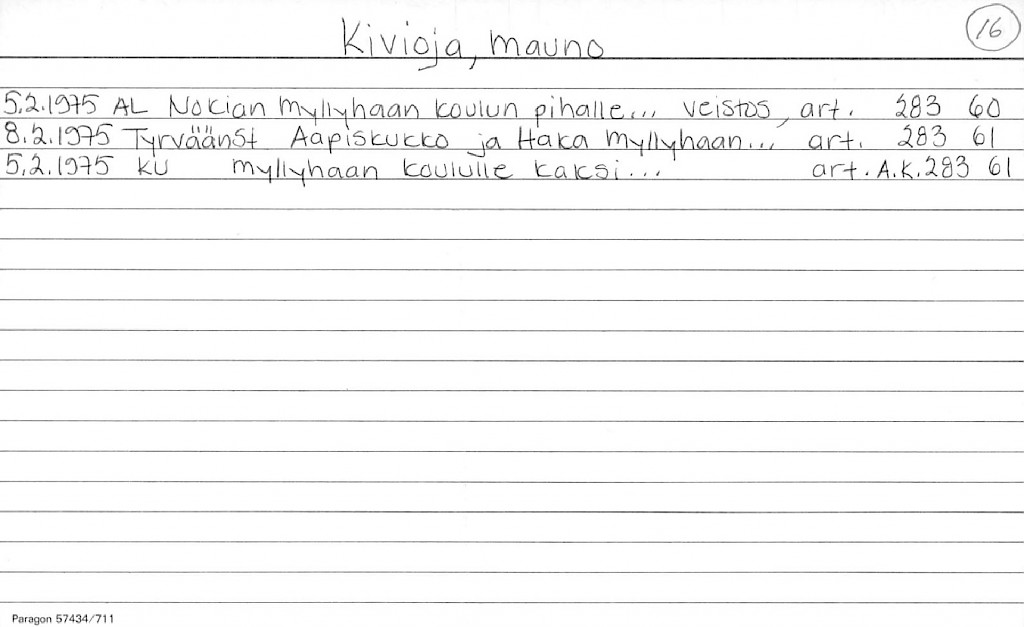 16
Kivioja, Mauno
5.2.1975 AL Nokian Myllyhaan koulun pihalle... veistos, art. 283 60
8.2.1975 TyrväänSt Aapiskukko ja Haka Myllyhaan... art. 283 61
5.2.1975 KU Myllyhaan koululle kaksi... art. A.K. 283 61
Paragon 57434/711